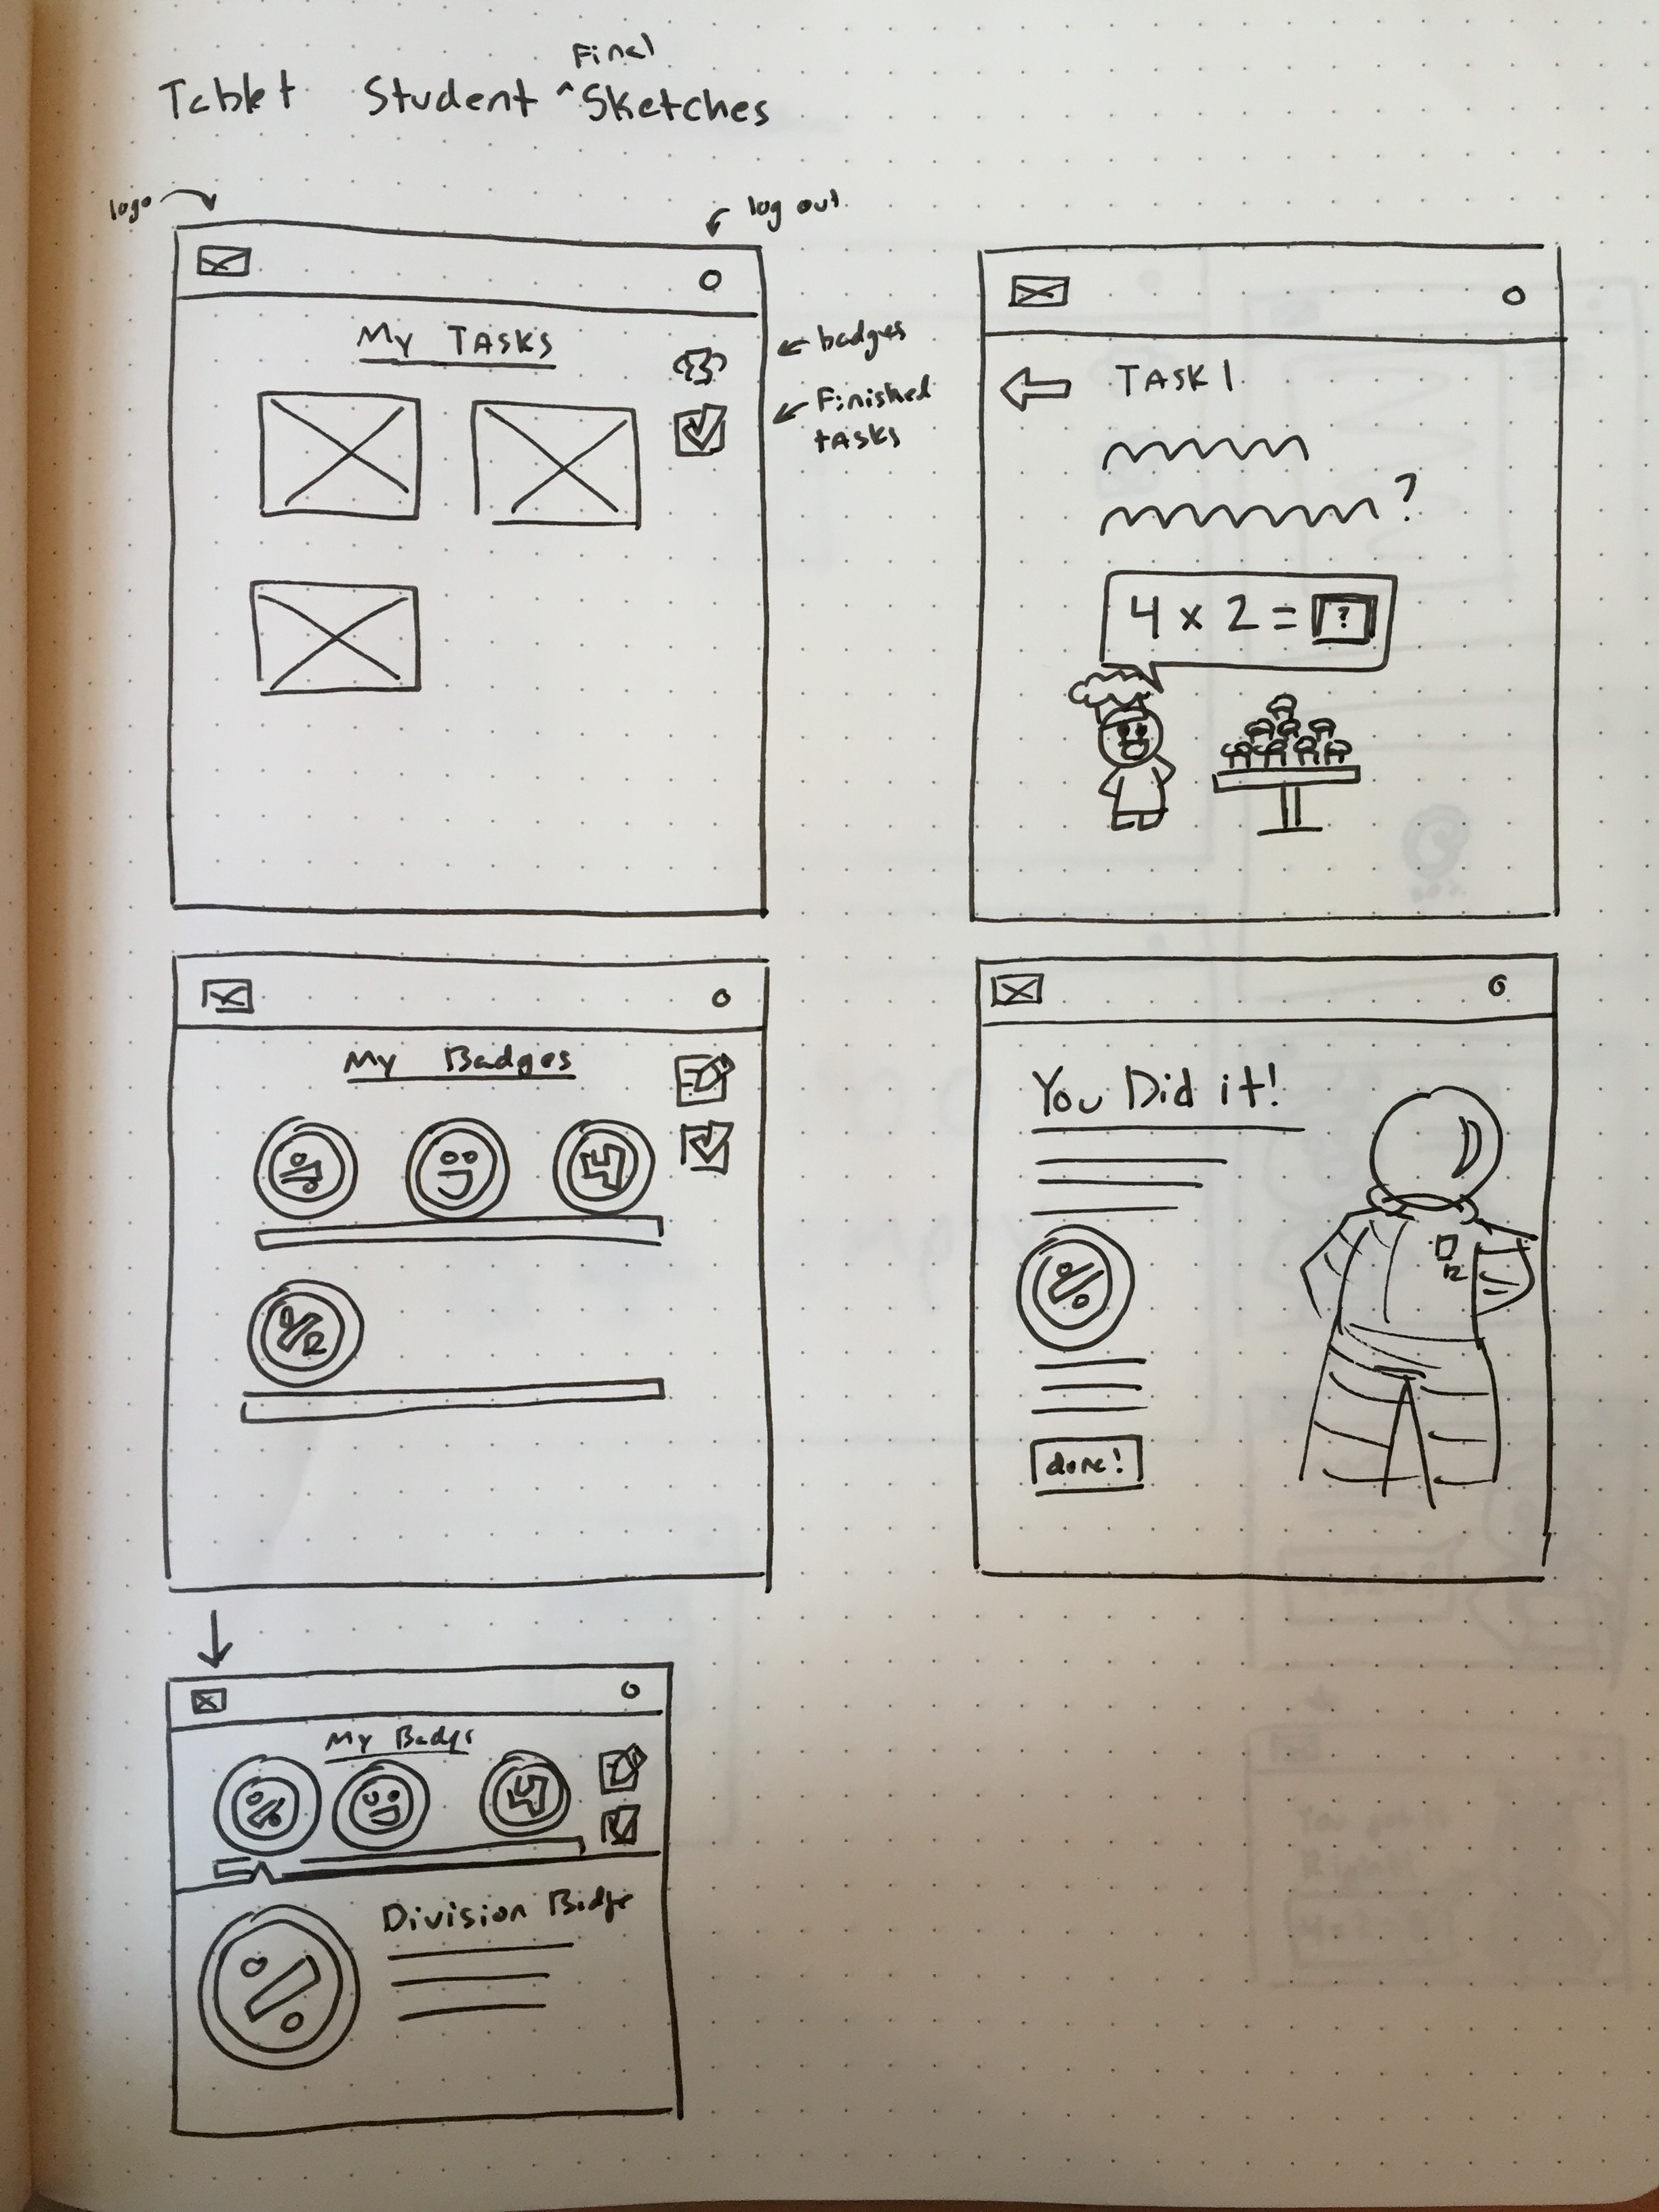 Tablet Student ^Final Sketches
logo
log out
My TASKS
badges
Finished
tasks
TASK 1
?
4 x 2 = ?
My Badges
4
1/2
You Did it!
done!
My Badge
4
Division Badge